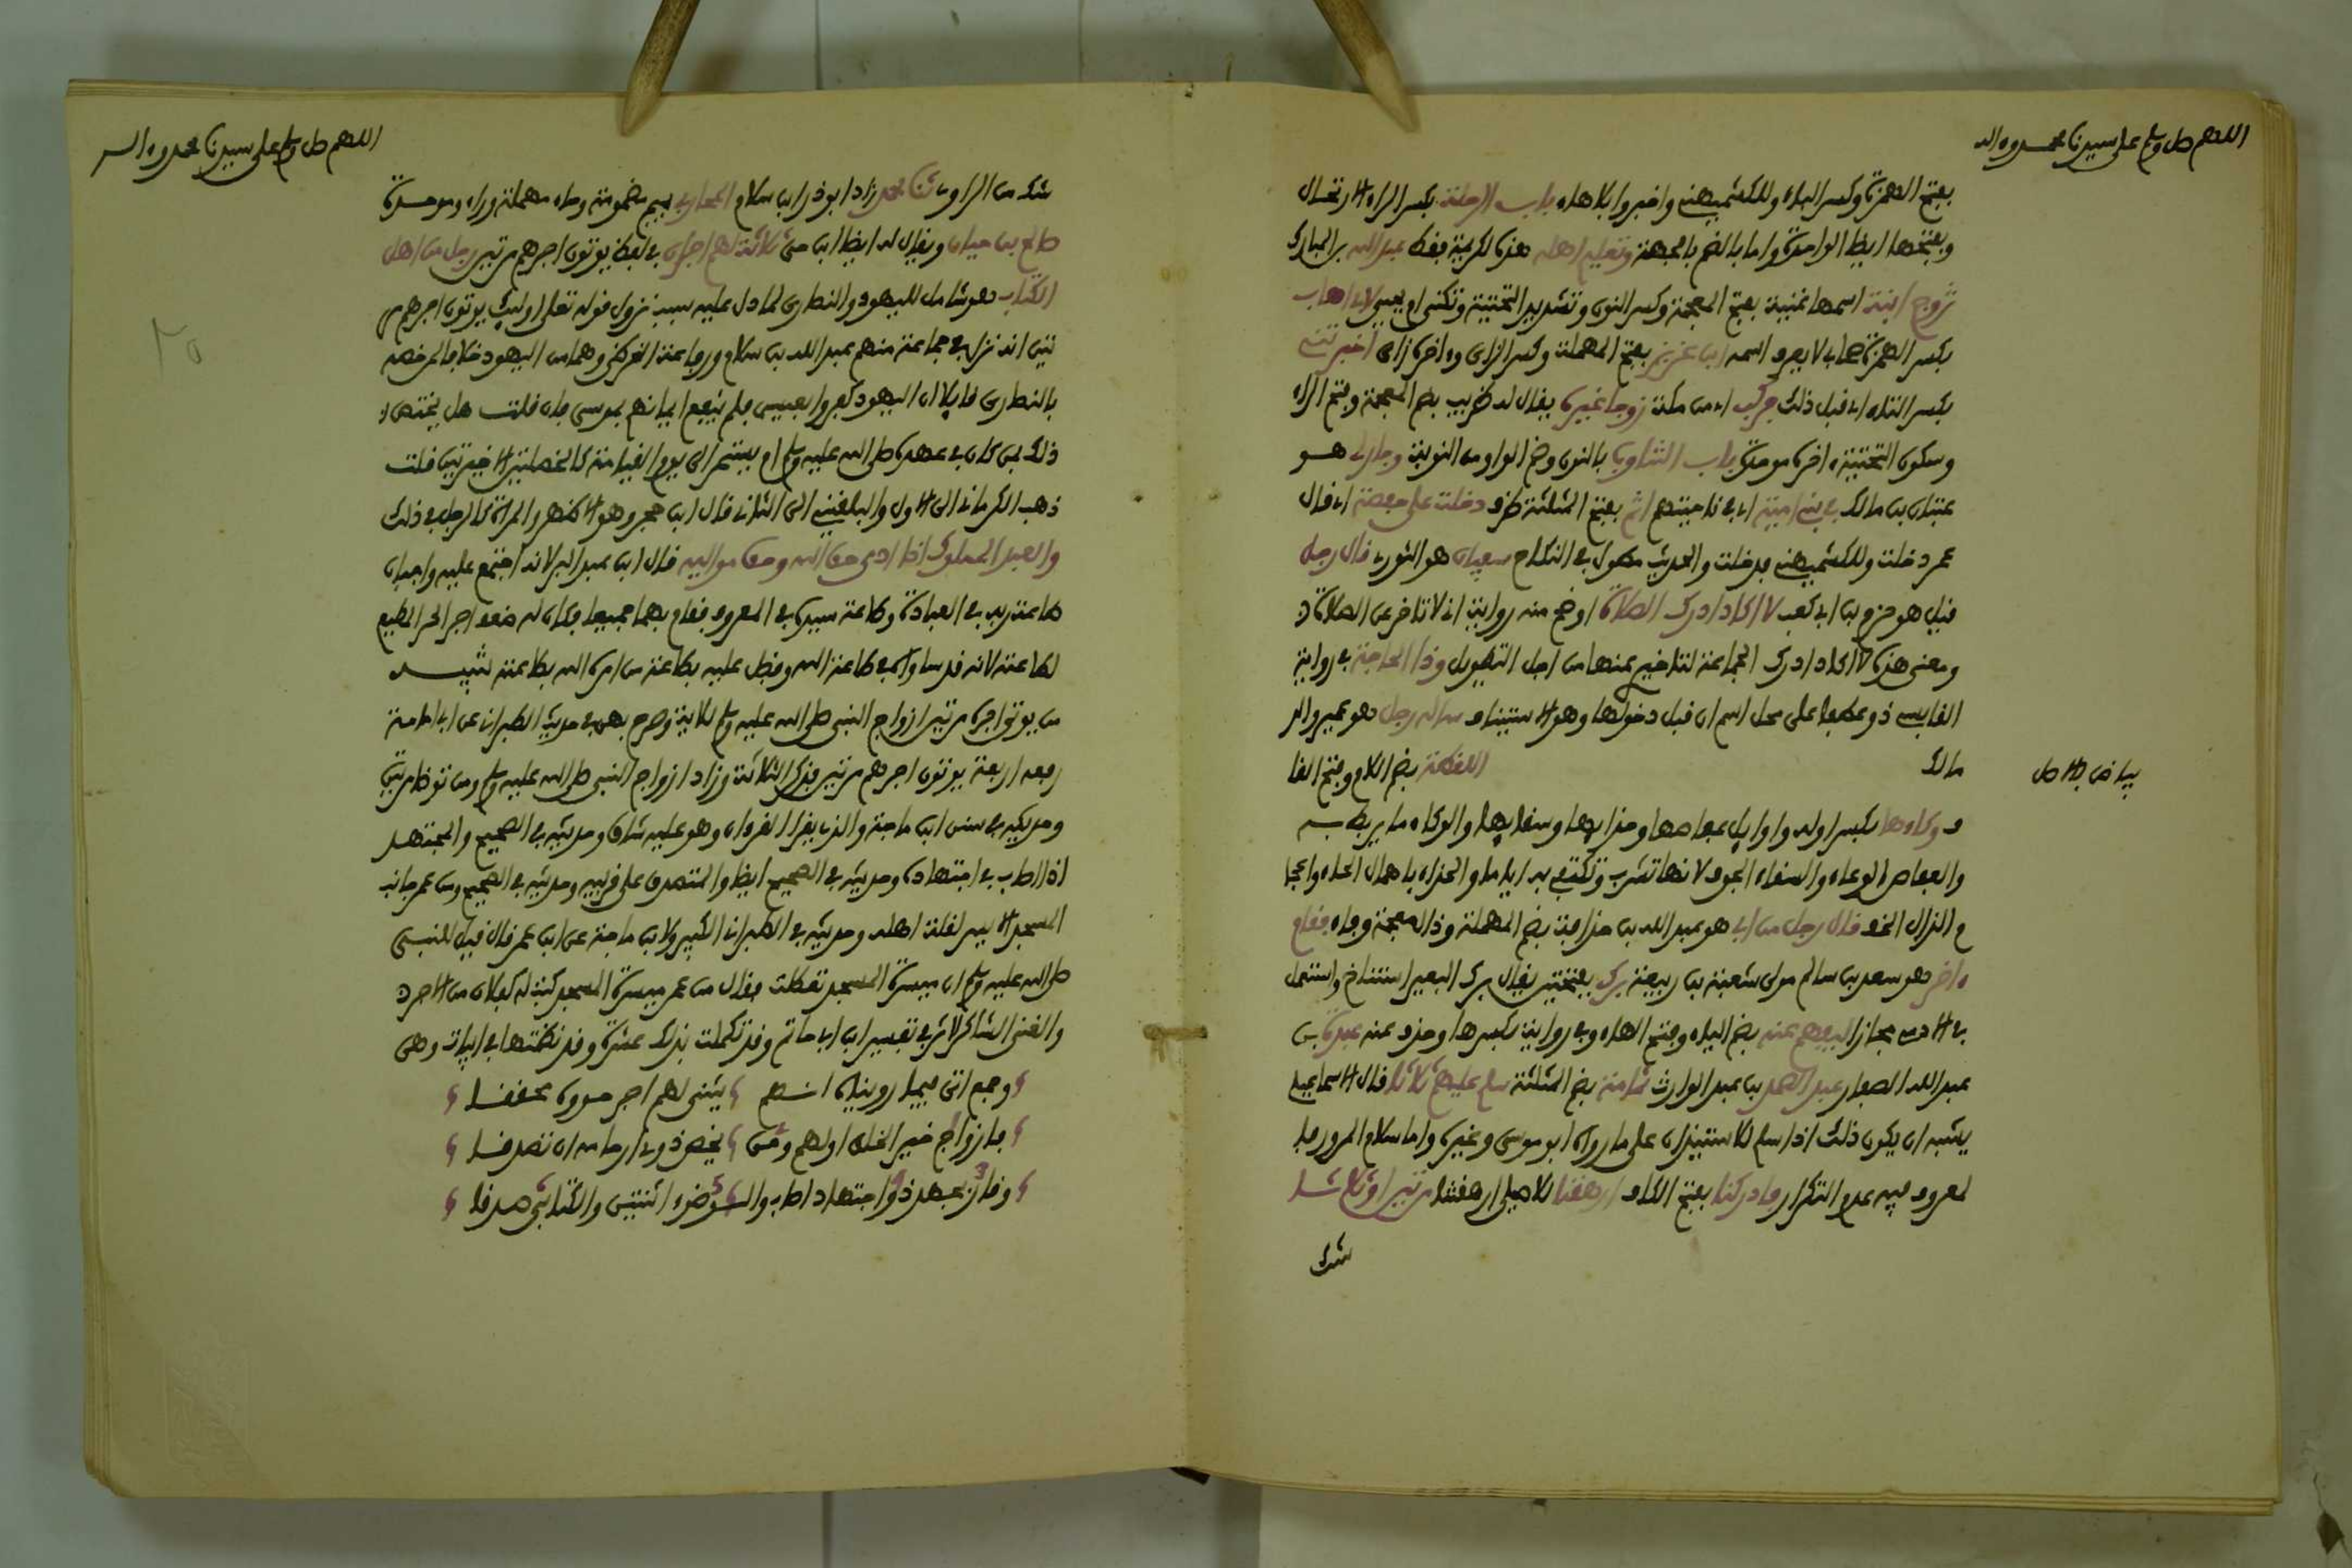 اللهم صل وسلم على سيدنا محمد وءاله
بفتح الهمزة وكسر الباء وللكشميهني واخبروا بلا هاء باب الرحلة بكسر الراء الارتحال
وبفتحها ايضا الواحدة واما بالضم بالجهة وتعليم اهله هذه لكريمة فقط عبد الله بن المبارك
تزوج ابنة اسمها غنية بفتح المعجمة وكسر النون وتشديد التحتية وتكنى ام يحيى لابي اهاب
بكسر الهمزة صحابي لا يعرف اسمه ابن عزيز بفتح المهملة وكسر الزاي وءاخره زاي اخبرتني
بكسر التاء اي قبل ذلك فركب اي من مكة زوجا غيره يقال له ضريب بضم المعجمة وفتح الراء
وسكون التحتية ءاخره موحدة باب التناوب بالنون وضم الواو من النوبة وجار لي هو
عتبان بن مالك في بني امية اي في ناحيتهم اثم بفتح المثلثة ظرف دخلت على حفصة اي قال
عمر دخلت وللكشميهني فدخلت والحديث مطول في النكاح سفيان هو الثوري قال رجل
قيل هو حزم بن ابي كعب لا اكاد ادرك الصلاة اوضح منه رواية اني لا تاخر عن الصلاة
ومعنى هذه لا اكاد ادرك الجماعة لتاخيري عنها من اجل التطويل وذا الحاجة في رواية
القابسي ذو عطفا على محل اسم ان قبل دخولها وهو الاستيناف ساله رجل هو عمير والد
مالك اللقطة بضم اللام وفتح القا
بياض بالاصل
ف وكاءها بكسر اوله واوايل عفاصها وحذاؤها وسقاؤها والوكاء ما يربط به
والعفاص الوعاء والسقاء الجوف لانها تشرب وتكتفي به اياما والحذاء باهمال الحاء واعجا
م الذال الخف قال رجل من ابي هو عبد الله بن حذافة بضم المهملة وذال معجمة وفاء فقام
ءاخر هو سعد بن سالم مولى شعبة بن ربيعة برك بفتحتين يقال برك البعير استناخ واستعمل
في الادمي مجازا ليفهم عنه بضم الياء وفتح الهاء وفي رواية بكسرها وحذف عنه عبدة بن
عبد الله الصفار عبد الصمد بن عبد الوارث ثمامة بضم المثلثة سلم عليهم ثلاثا قال الاسماعيلي
يشبه ان يكون ذلك اذا سلم للاستيذان على ما رواه ابو موسى وغيره واما سلام المرور فا
لمعروف فيه عدم التكرار فادركنا بفتح الكاف ارهقنا للاصيلي ارهقتنا مرتين او ثلاثا
شك
اللهم صل وسلم على سيدنا محمد وءاله
شك من الراوي ثنا محمد زاد ابو ذر ابن سلام المحاربي بميم مضمومة وحاء مهملة وراء وموحدة
صالح بن حيان ويقال له ايضا ابن حي ثلاثة لهم اجران في لفظ يوتون اجرهم مرتين رجل من اهل
الكتاب هو شامل لليهود والنصارى لما دل عليه سبب نزول قوله تعلى اوليك يوتون اجرهم مر
تين انه نزل في جماعة منهم عبد الله بن سلام ورفاعة القرظي وهما من اليهود خلافا لمن خصه
بالنصارى قايلا ان اليهود كفروا بعيسى فلم ينفع ايمانهم بموسى فان قلت هل يختص
ذلك بمن كان في عهده صلى الله عليه وسلم ام يستمر الى يوم القيامة كالخصلتين الاخيرتين قلت
ذهب الكرماني الى الاول والبلقيني الى الثاني قال ابن حجر وهو الاظهر والمراة كالرجل في ذلك
والعبد المملوك اذا ادى حق الله وحق مواليه قال ابن عبد البر لانه اجتمع عليه واجبان
طاعة ربه في العبادة وطاعة سيده في المعروف فقام بهما جميعا فكان له ضعف اجر الحر المطيع
لطاعته لانه قد ساواه في طاعة الله وفضل عليه بطاعة من امره الله بطاعته تنبيه
من يوتى اجره مرتين ازواج النبي صلى الله عليه وسلم للاية وصرح بهن في حديث الطبراني عن ابي امامة
رفعه اربعة يوتون اجرهم مرتين فذكر الثلاثة وزاد ازواج النبي صلى الله عليه وسلم ومن توضا مرتين
وحديثه في سنن ابن ماجة والذي يقرا القرءان وهو عليه شاق وحديثه في الصحيح والمجتهد
اذا اصاب في اجتهاده وحديثه في الصحيح ايضا والمتصدق على قريبه وحديثه في الصحيح ومن عمر جانب
المسجد الايسر لقلة اهله وحديثه في الطبراني الكبير ولابن ماجة عن ابن عمر قال قيل للنبي
صلى الله عليه وسلم ان ميسرة المسجد تعطلت فقال من عمر ميسرة المسجد كتب له كفلان من الاجر
والغني الشاكر لاثر في تفسير ابن ابي حاتم وقد تكملت بذلك عشرة وقد نظمتها في ابيات وهي
وجمع اتى فيما رويناه انهم يثنى لهم اجر حووه محققا
فازواج خير الخلق اولهم ومن يخص ذوي ارحامه ان تصدقا
وقار بجهد ذو اجتهاد اصاب والوضوء اثنتين والكتابي صدقا